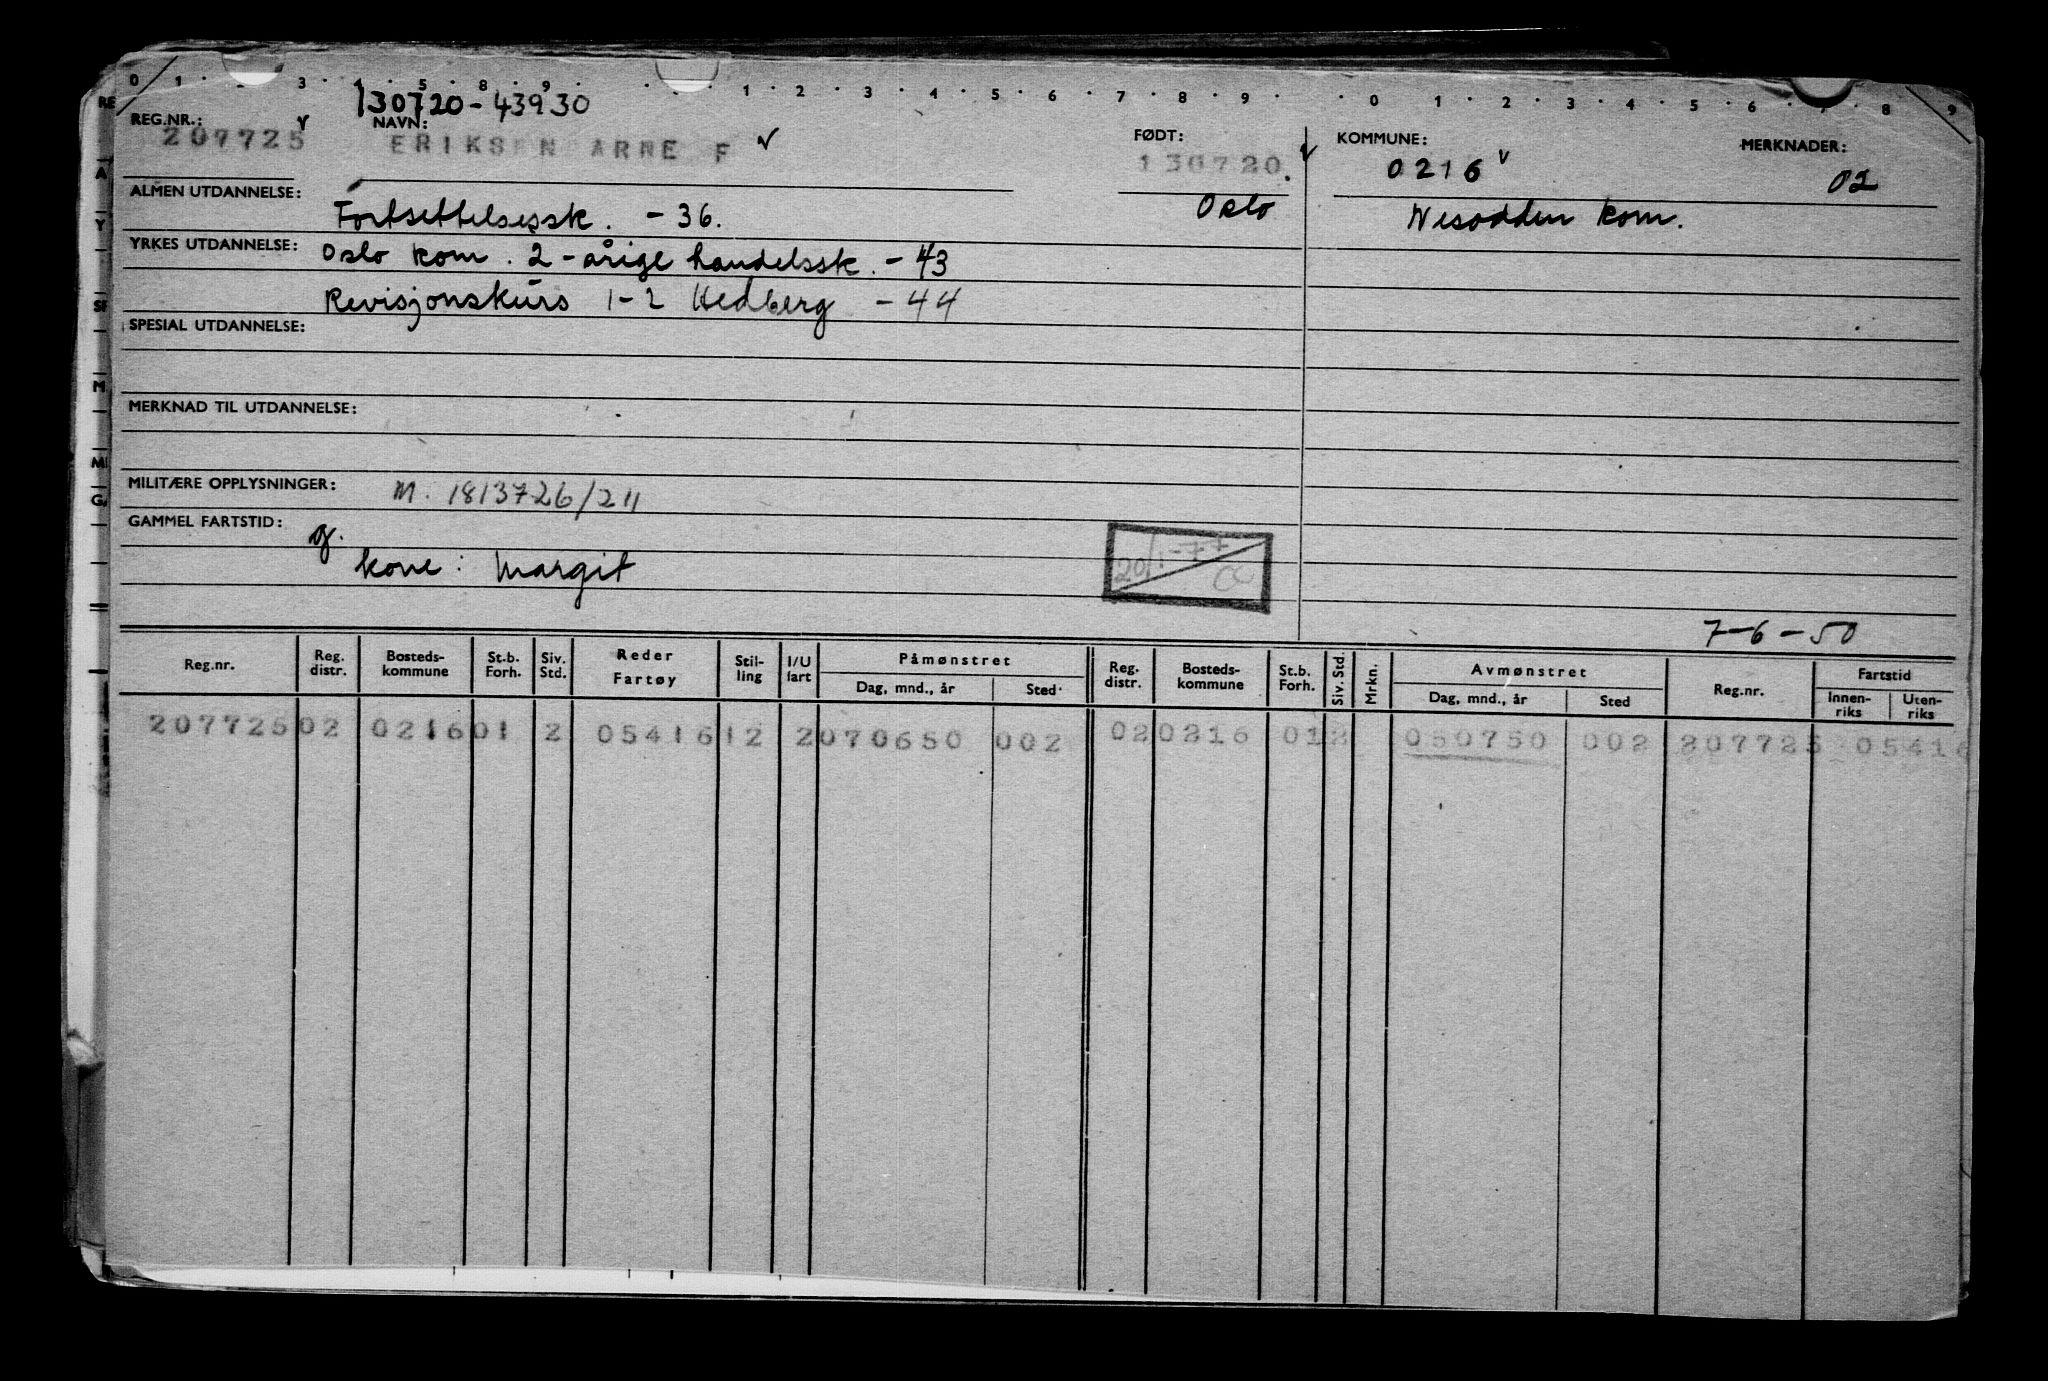 130720-43930
REG.NR.: 207725 NAVN: ERIKSEN ARNE F FØDT: 130720. KOMMUNE: 0216 MERKNADER: 02
ALMEN UTDANNELSE: Fortsettelsessk. -36. Oslo Nesodden kom.
YRKES UTDANNELSE: Oslo kom. 2-årige handelssk. -43
Revisjonskurs 1-2 Hedberg -44
SPESIAL UTDANNELSE:
MERKNAD TIL UTDANNELSE:
MILITÆRE OPPLYSNINGER: M. 1813726/211
GAMMEL FARTSTID: g.
kone: Margit
20/1-77
7-6-50
Reg.nr. Reg. distr. Bosteds-kommune St.b. Forh. Siv. Std. Reder Fartøy Stil-ling I/U fart Påmønstret Dag, mnd., år Sted Reg. distr. Bosteds-kommune St.b. Forh. Siv. Std. Mrkn. Avmønstret Dag, mnd., år Sted Reg.nr. Fartstid Innen-riks Uten-riks
207725 02 0216 01 2 05416 12 2 070650 002 02 0216 01 2 050750 002 207725 05416